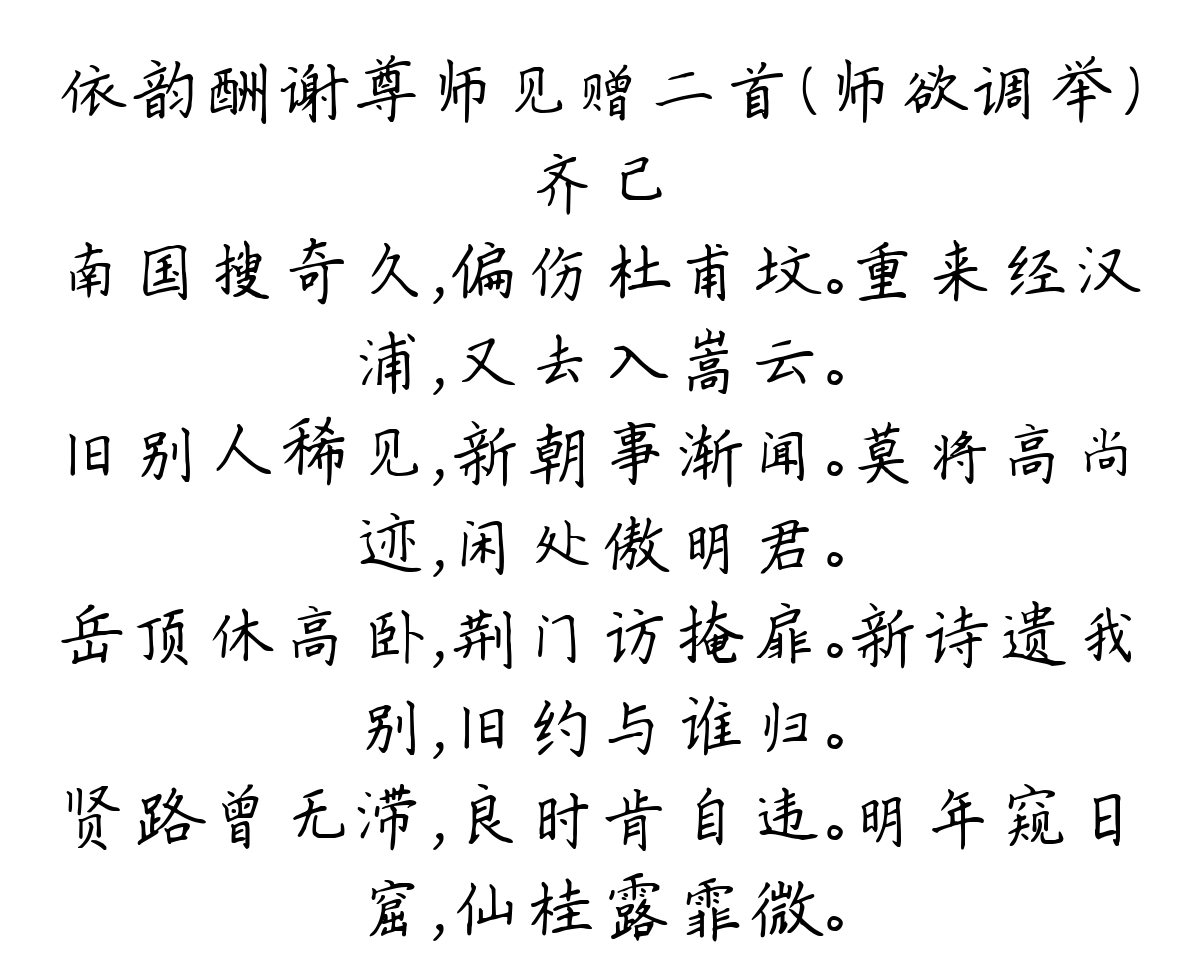 依韵酬谢尊师见赠二首(师欲调举)
齐己
南国搜奇久,偏伤杜甫坟。重来经汉
浦,又去入嵩云。
旧别人稀见,新朝事渐闻。莫将高尚
迹,闲处傲明君。
岳顶休高卧,荆门访掩扉。新诗遗我
别,旧约与谁归。
贤路曾无滞,良时肯自违。明年窥日
窟,仙桂露霏微。